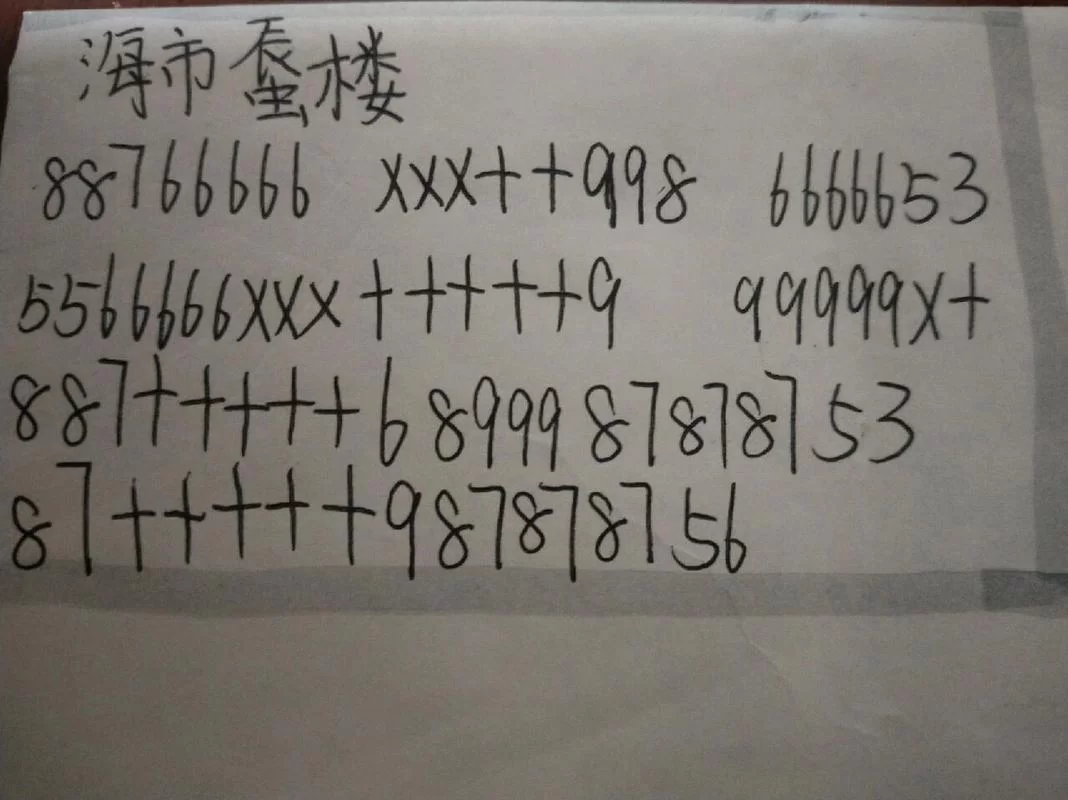 海市蜃楼
88766666 xxx++998 6666653
5566666xxx+++++9 99999x+
887+++++6899987878753
87+++++987878756